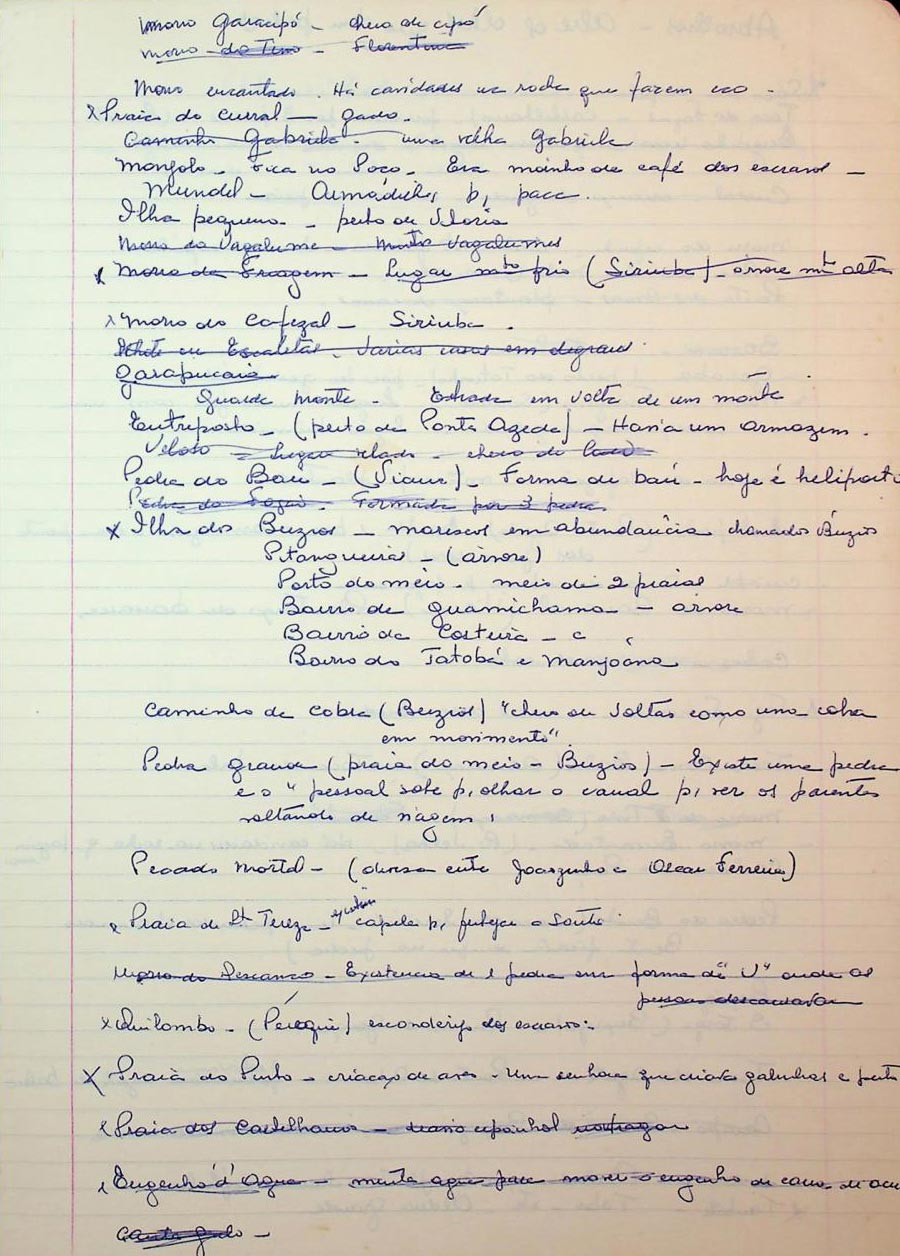 Morro Garacipó - cheio de cipó
Morro do Timo - Florentina
Morro encantado. Há cavidades na rocha que fazem eco.
x Praia do Curral - gado.
Caminho Gabriela - uma velha Gabriela
Monjolo - Fica no Poço. Era moinho de café dos escravos -
Mundel - Armadilha p/ paca.
Ilha pequena - perto de Vitoria
Morro do Vagalume - muitos vagalumes
x Morro da Friagem - Lugar mto frio (Siriuba) - árvore mto alta
x Morro do Cafezal - Siriuba.
ou Escaletas - Varias casas em degraus.
Garapucaia -
Guarda monte - Estrada em volta de um monte
Entreposto - (perto de Ponta Azeda) - Havia um armazem.
Veloso - lugar velado - cheio de
Pedra do Baú - (Viana) - Forma de baú - hoje é heliporto
Pedra do Fogão - Formada por 3 pedras
x Ilha dos Buzios - mariscos em abundância chamados Búzios
Pitangueiras - (árvore)
Porto do meio - meio de 2 praias
Bairro de guamichama - árvore
Bairro da Costeira - c
Bairro do Tatobá e Manjoána
Caminho de Cobra (Buzios) "cheio de voltas como uma cobra
em movimento"
Pedra grande (praia do meio - Búzios) - Existe uma pedra
e o " pessoal sobe p/ olhar o canal p/ ver os parentes
voltando de viagem.
Pecado Mortal - (divisa entre Joaozinho e Oscar Ferreira)
x Praia de Sta Tereza - existia capela p/ festejar a Santa.
Morro do Descanco - Existencia de 1 pedra em forma de "U" onde as
pessoas descansavam
x Quilombo - (Perequê) esconderijo dos escravos.
x Praia do Pinto - criação de aves - Uma senhora que criava galinhas e pinto
x Praia dos Castelhanos - navio espanhol naufragou
x Engenho d'Agua - muita agua para mover o engenho de cana de acu
Canta galo -